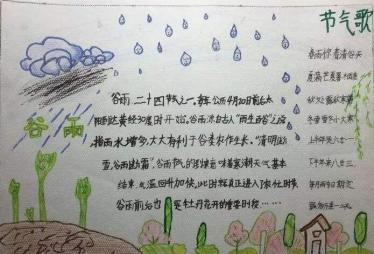 节气歌
谷雨
谷雨,二十四节气之一,每年公历4月20日前后太
阳到达黄经30度时开始,谷雨源自古人"雨生百谷"之说
指雨水增多,大大有利于谷类农作物生长。"清明断
雪,谷雨断霜",谷雨节气的到来意味着寒潮天气基本
结束,气温回升加快,此时
谷雨前后也是牡丹花开的重要时段……
春雨惊春清谷天
夏满芒夏暑相连
秋处露秋寒霜
冬雪雪冬小大寒
上半年六廿一
下半年八廿三
每月两日期定